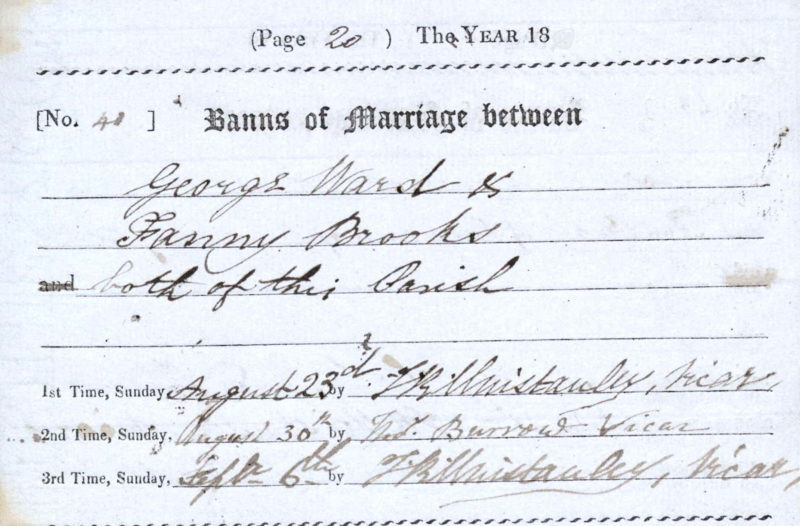 (Page 20 ) The YEAR 18
[No. 40 ] Banns of Marriage between
George Ward &
Fanny Brooks
and both of this Parish
1st Time, Sunday, August 23d by Vicar,
2nd Time, Sunday, August 30th by Burrow Vicar
3rd Time, Sunday, Septr 6th by Vicar,